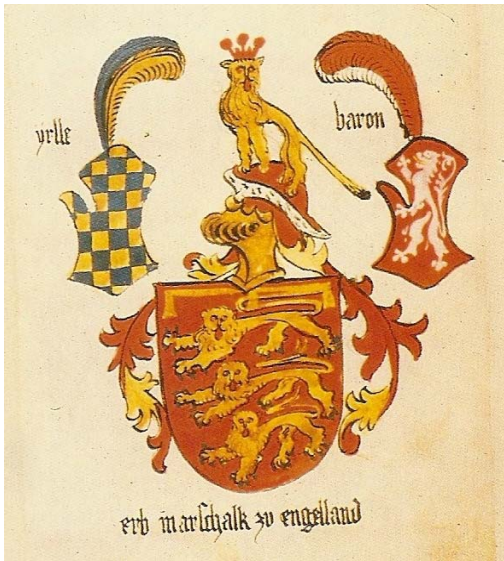 yrlle
baron
erb marschalk zu engelland